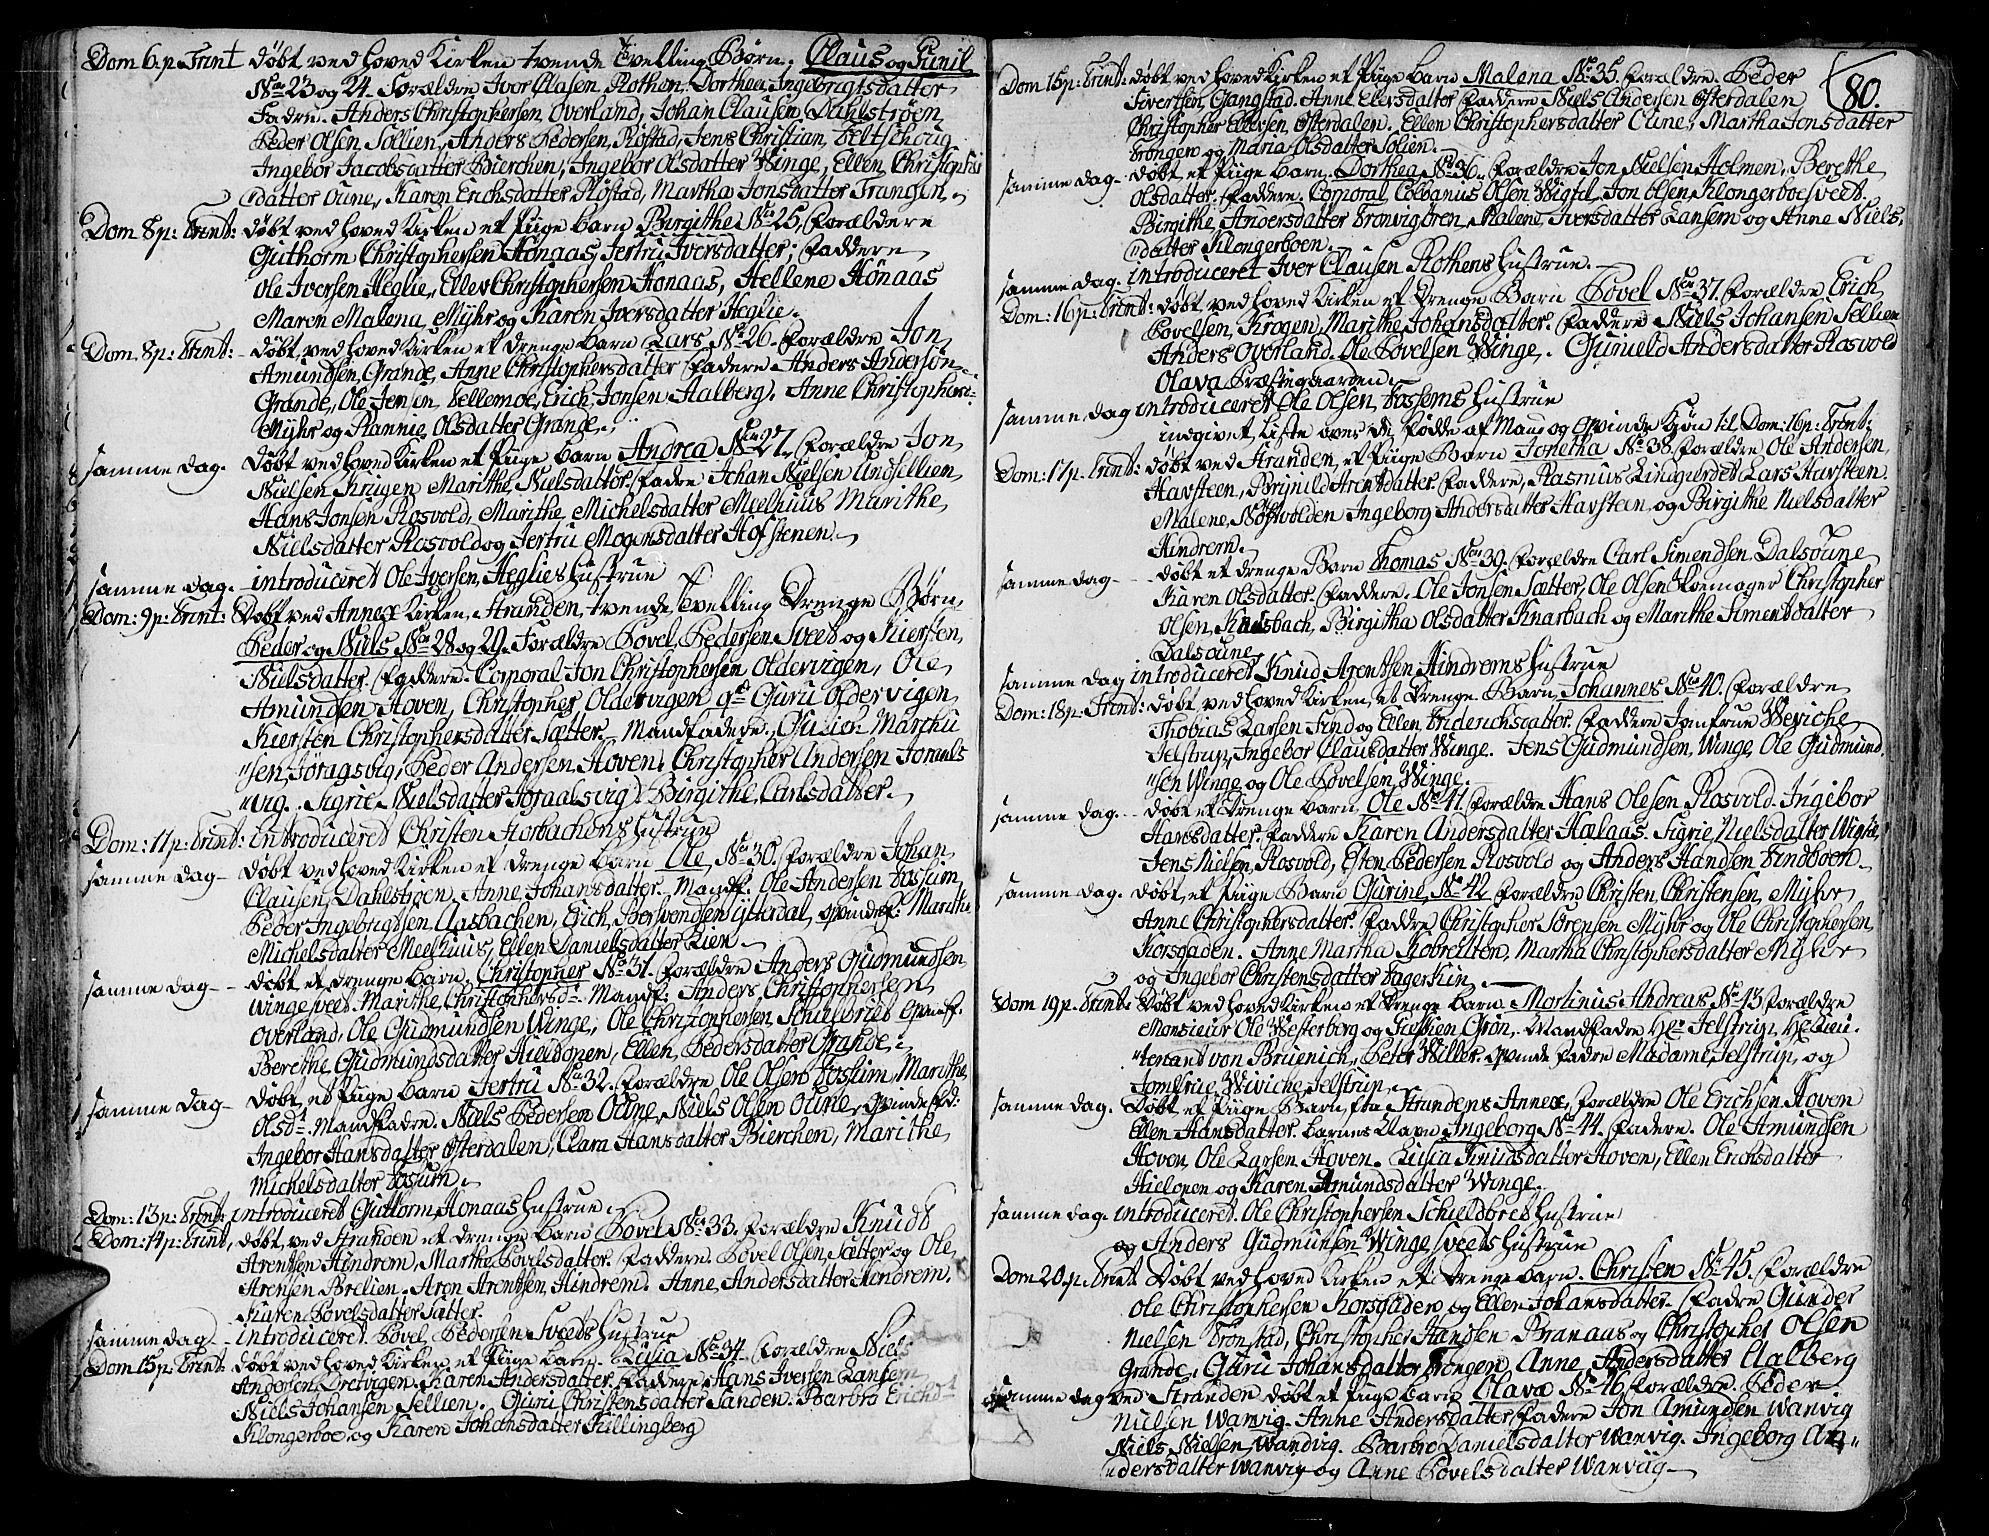 Dom 6 p Trint døbt ved Hoved Kirken tvende Tvelling Børn: Claus og Gunil
No 23 og 24. Forældre Iver Olsen Rothen. Dorthea Ingebrigtsdatter
Fadre. Anders Christophersen Overland, Johan Clausen Dahlstrøen
Peder Olsen Sollien, Anders Pedersen, Røstad, Jens Christian
Ingebor Jacobsdatter Bierchen, Ingebor Olsdatter Winge, Ellen Christophers
datter Oune, Karen Erichsdatter Røstad, Martha Jonsdatter Trangen.
Dom 8 p: Trint: døbt ved Hoved Kirken et Piige Barn Birgithe No 25, Forældere
Guthorm Christophersen Hønaas, Jertru Iversdatter; Faddere
Ole Iversen Heglie, Ellev Christophersen Hønaas, Hellene Hönaas
Maren Malena Myhr og Karen Iversdatter Heglie.
Dom. 8 p: Trint: døbt ved Hoved Kirken et Drenge Barn Lars No 26. Forældre Jon
Amundsen Grande, Anne Christophersdatter Fadere Anders Andersön
Grande, Ole Jensen Tellemoe, Erich Jonsen Aalberg, Anne Christophers
Myhr og Rannie Olsdatter Grange.
samme dag. Døbt ved Hoved Kirken et Piige Barn Andrea No 27, Forældre Jon
Nielsen Krigen Marithe Nielsdatter. Fadre Johan Nielsen Undsellien,
Hans Jonsen Rosvold, Marithe Michelsdatter Meelhuus Marithe
Nielsdatter Rosvold og Jertru Mogensdatter Hofstenen.
samme dag. introduceret Ole Iversen Heglies Hustrue
Dom: 9 p: Trint: Døbt ved Annex Kirken Stranden, tvende Tvelling Drenge Børn,
Peder og Niels No 28 og 29. Forældre Povel Pedersen Sveet og Kiersten
Nielsdatter. Faddere. Corporal Jon Christophersen Oldervigen, Ole
Amundsen Hoven, Christopher Oldervigen qd Guru Oldervigen
Kiersten Christophersdatter Sætter. Mandfadede.
sen, Foragsvig, Peder Andersen Hoven, Christopher Andersen
vig. Sigrie Nielsdatter Foraalsvig Birgithe Carlsdatter.
Dom: 11 p: Trint: introduceret Christen Korbachens Hustrue
samme dag Døbt ved Hoved Kirken et Drenge Barn Ole No 30. Forældre Johan
Clausen, Dahlstrøen, Anne Johansdatter. Mandf. Ole Andersen Fossum,
Peder Ingebrigtsen Aasbachen, Erich Berhvendsen Ytterdal, qvindef: Marithe
Michelsdatter Meelhuus, Ellen Danielsdatter Lien
samme dag Døbt et Drenge Barn Christopher No 31. Forældre Anders Gudmundsen
Winge sveet. Marithe Christophersd. Mandf: Anders Christophersen
Overland, Ole Gudmundsen Winge, Ole Christophersen Schielbriet Qvindf.
Berethe Gudmundsdatter Hieldonen, Ellen Pedersdatter Grande.
samme dag Døbt et Piige Barn Jertru No 32. Forældre Ole Olsen Fossum, Marithe
Olsd. Mandfadre. Niels Pedersen Oune, Niels Olsen Oune, Qvindefd:
Ingebor Hansdatter Østerdalen, Clara Hansdatter Bierchen, Marithe
Michelsdatter Fossum.
Dom: 13 p: Trint: introduceret Guttorm Hønaas Hustrue.
Dom: 14 p: Trint, døbt ved Stranden et drenge Barn Povel No 33. Forældre Knudt
Arentsen Hindrem, Marthe Povelsdatter. Faddere. Povel Olsen, Sætter og Ole
Arensen Brelien. Aron Arentsen Hindrem. Anne Andersdatter Hindrem.
Karen Povelsdatter Sætter.
samme dag introduceret. Povel Pedersen Sveets Hustrue
Dom 15 p: Trint: døbt ved Hoved Kirken et Piige Barn. Lusia No 34 Forældre Niels
Andersen Bretvigen. Karen Andersdatter. Faddere Hans Iversen Lansem
Niels Johansen Sellien. Guri Christensdatter Sanden. Barbro Erichsd
Klongerboe og Karen Johansdatter Killingberg
80.
Dom 15 p: Trint: døbt ved Hoved Kirken et Piige Barn Malena No 35. Forældre. Peder
Sivertsen, Gangstad. Anne Elersdatter Faddere Niels Andersen Østerdalen
Christopher Ebbesen Østerdalen. Ellen Christophersdatter Oune, Martha Jonsdatter
Trongen og Maria Olsdatter Solien.
samme dag. døbt et Piige Barn. Dorthea No 36. Forældre Jon Nielsen Holmen. Berethe
Olsdatter. Faddere. Corporal Colbanius Olsen Wigtel, Jon Olsen Klongerboe sveet.
Birgithe Andersdatter Tronvigören, Malene Iversdatter Lansem og Anne Niels
datter Klongerboen.
samme dag. introduceret Iver Clausen Rothens Hustrue.
Dom: 16 p: Trint: døbt ved Hoved Kirken et Drenge Barn Povel No 37. Forældre Erich
Povelsen, Krogen, Marithe Johansdatter. Faddere Niels Johansen Sellien
Anders Overland. Ole Povelsen Winge. Gunield Andersdatter Rosvold
Olava Præstegaarden.
samme dag introduceret Ole Olsen Fossems Hustrue
indgivet Liste over de fødde af Man og Qvinde Kjøn til Dom: 16 p: Trint:
Dom: 17 p. Trint: døbt ved Stranden, et Piige Barn Jonetha No 38. Forældre Ole Andersen,
Havsteen, Brynild Arentsdatter Faddere, Rasmus Lindgierdet Lars Havsteen.
Malene, Nøstvolden Ingeborg Andersdatter Havsteen og Birgithe Nielsdatter
Hindrem.
samme dag døbt et Drenge Barn Thomas No 39. Forældre Carl Simendsen, Dalsoune
Karen Olsdatter. Faddere. Ole Jonsen Sætter, Ole Olsen Skoemager Christopher
Olsen, Knarbach, Birgitha Olsdatter Knarbach og Marithe Simensdatter
Dalsoune.
samme dag introduceret Knud Arentsen Hindrems Hustrue
Dom: 18 p: Trint: døbt ved Hoved Kirken, et Drenge Barn, Johannes No 40. Forældre
Thobias Larsen Tind og Ellen Friderichsdatter. Faddere Jomfrue Weviche
Jelstrup, Ingebor Clausdatter Winge. Jens Gudmundsen, Winge, Ole Gudmund
sen Winge og Ole Povelsen Winge.
samme dag. døbt et Drenge barn Ole No 41. Forældre Hans Olesen Rosvold. Ingebor
Hansdatter. Faddere Karen Andersdatter Hælaas. Sigrie Nielsdatter Winge
Jens Nielsen, Rosvold, Esten Pedersen Rosvold og Anders Handsen Findboen
samme dag. døbt et Piige Barn Gurine, No 42 Forældre Christen Christensen, Myhr
Anne Christophersdatter. Faddre Christopher Sörensen Myhr og Ole Christophersen
Korsgaden. Anne Martha Kobrellten. Martha Christophersdatter Myhr
og Ingebor Christensdatter Fagerliin.
Dom 19 p. Trint: Døbt ved Hoved Kirken et Drenge Barn. Mortinus Andreas No 43 Forældre
Monsieur Ole Westerberg og Susthien Grøn. Mandfadre Hr Jelstrup, Hr Lieu
tenand von Brüenich, Peter Willer. Qvinde fadre Madame Jelstrup, og
Jomfrue Wiviche Jelstrup.
samme dag. Døbt et Piige Barn fra Strandens Annex, Forældre Ole Erichsen Hoven
Ellen Hansdatter. Barnes Navn Ingeborg No 44. Fadere. Ole Amundsen
Hoven, Ole Larsen Hoven. Lusia Knudsdatter Hoven, Ellen Erichsdatter
Hielonen og Karen Amundsdatter Winge.
samme dag. introduceret. Ole Christophersen Schieldbret Hustrue
og Anders Gudmunsen Winge sveets Hustrue
Dom 20. p. Trint Døbt ved Hoved Kirken et Drenge Barn. Christen No 45. Forældre
Ole Christophersen Korsgaden og Ellen Johansdatter. Fadre Gunder
Nielsen Tronstad, Christopher Handsen Branaas og Christopher Olsen
Grande, Guru Johansdatter Trongen, Anne Andersdatter Aalberg
samme dag ved Stranden døbt et Piige Barn Olava No 46. Forældre. Peder
Nielsen Wanvig. Anne Andersdatter, Fadere Jon Amundsen Wanvig
Niels Nielsen, Wandvig. Barbro Danielsdatter Wanvig. Ingeborg An
dersdatter Wanvig og Anne Povelsdatter Wanviig